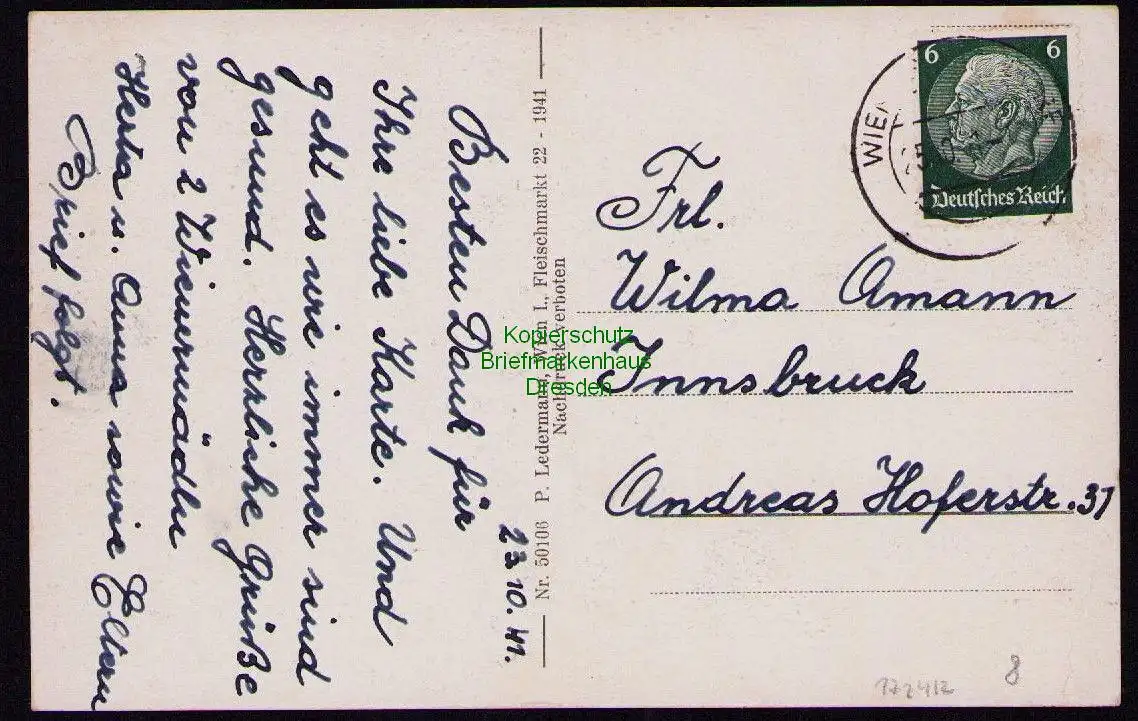 23.10.41.
Besten Dank für
Ihre liebe Karte. Und
geht es wie immer sind
gesund. Herzliche Grüße
von 2 Wienermädln
Herta u. Anna sowie Eltern
Brief folgt.
Nr. 50106 P. Ledermann, Wien I., Fleischmarkt 22 - 1941
Nachdruck verboten
Kopierschutz
Briefmarkenhaus
Dresden
6 6
Deutsches Reich
WIEN
Frl.
Wilma Amann
Innsbruck
Andreas Hoferstr. 31
8